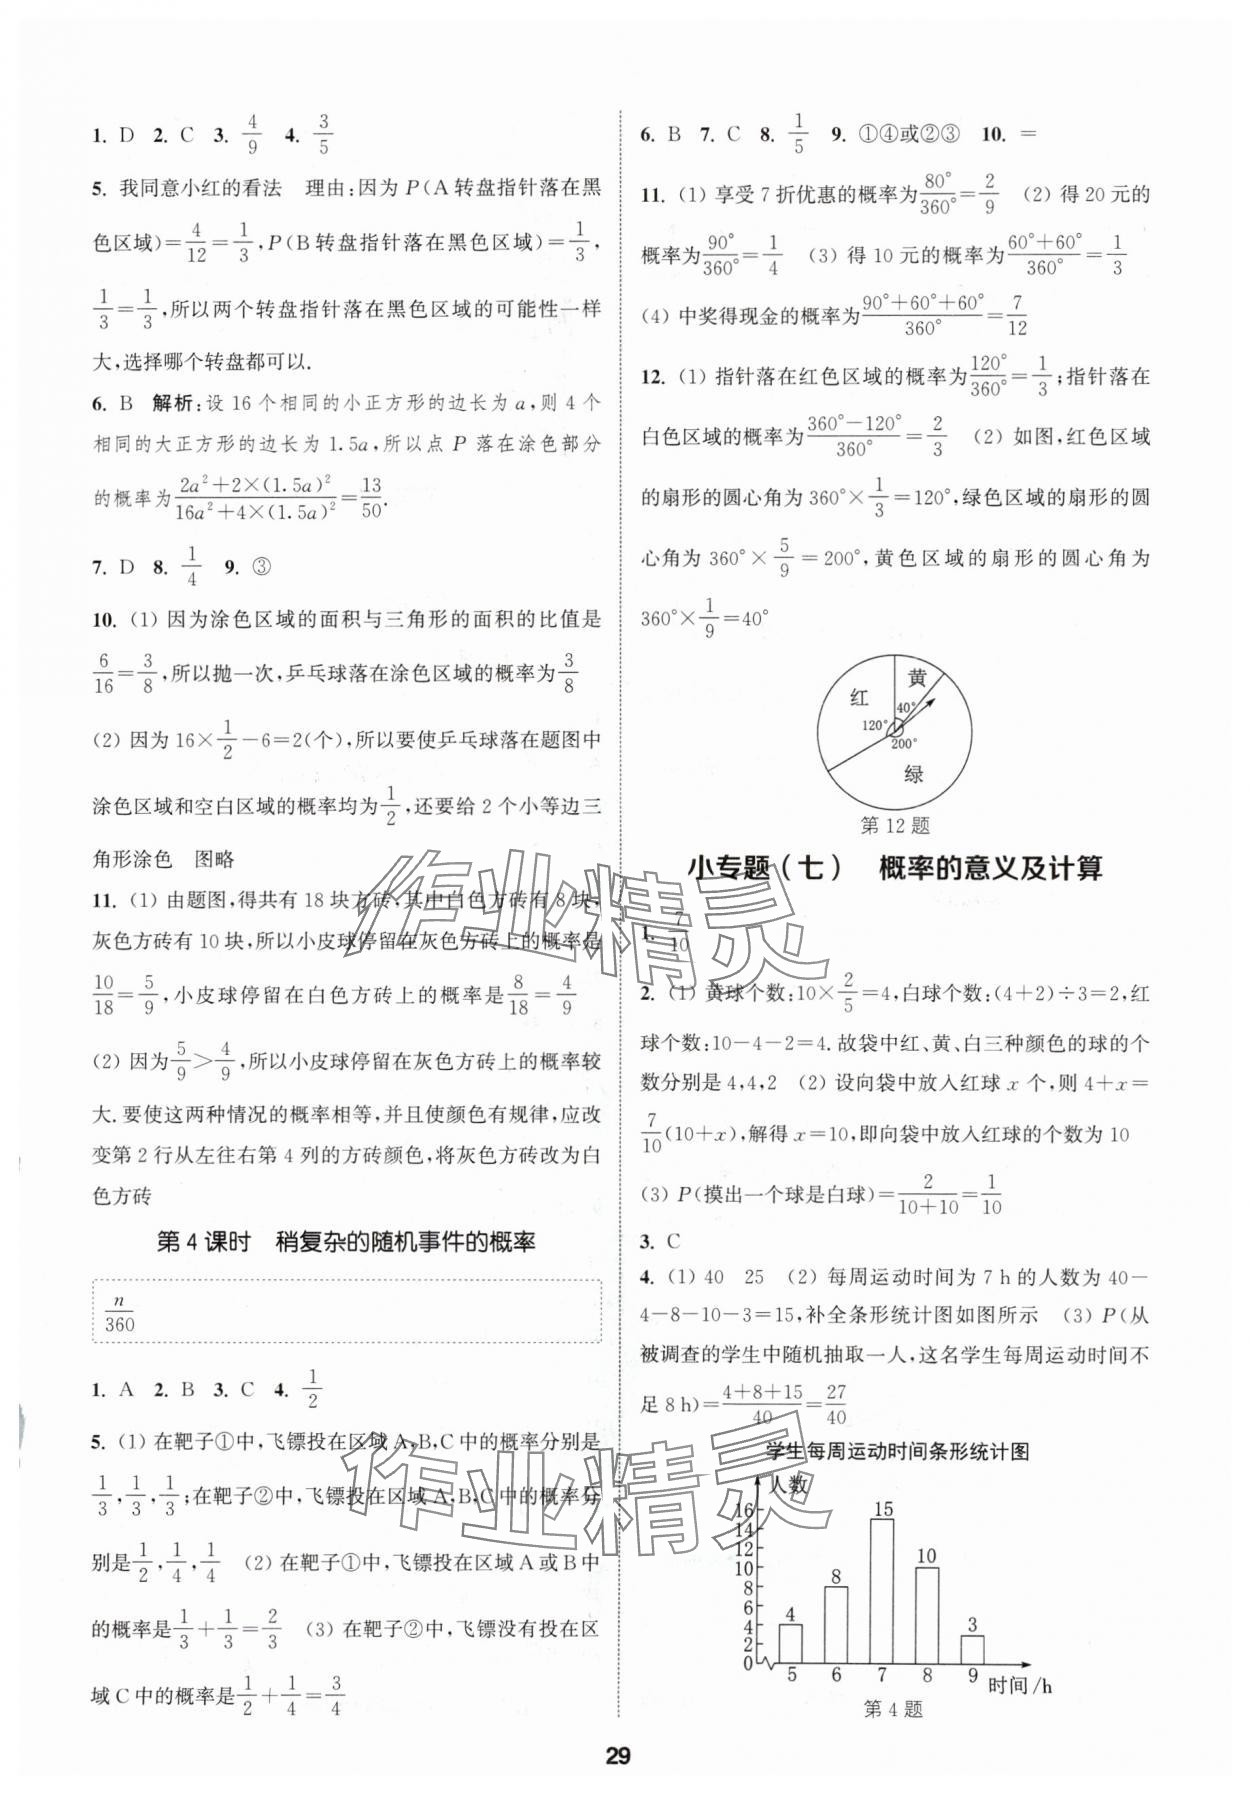 1. D 2. C 3. 4/9 4. 3/5
5. 我同意小红的看法 理由:因为 P(A 转盘指针落在黑
色区域)=4/12=1/3,P(B 转盘指针落在黑色区域)=1/3,
1/3=1/3,所以两个转盘指针落在黑色区域的可能性一样
大,选择哪个转盘都可以.
6. B 解析:设 16 个相同的小正方形的边长为 a,则 4 个
相同的大正方形的边长为 1.5a,所以点 P 落在涂色部分
的概率为(2a²+2×(1.5a)²)/(16a²+4×(1.5a)²)=13/50.
7. D 8. 1/4 9. ③
10. (1) 因为涂色区域的面积与三角形的面积的比值是
6/16=3/8,所以抛一次,乒乓球落在涂色区域的概率为3/8
(2) 因为 16×1/2-6=2(个),所以要使乒乓球落在题图中
涂色区域和空白区域的概率均为1/2,还要给 2 个小等边三
角形涂色 图略
11. (1) 由题图,得共有 18 块方砖,其中白色方砖有 8 块,
灰色方砖有 10 块,所以小皮球停留在灰色方砖上的概率是
10/18=5/9,小皮球停留在白色方砖上的概率是8/18=4/9
(2) 因为5/9>4/9,所以小皮球停留在灰色方砖上的概率较
大.要使这两种情况的概率相等,并且使颜色有规律,应改
变第 2 行从左往右第 4 列的方砖颜色,将灰色方砖改为白
色方砖
第 4 课时 稍复杂的随机事件的概率
n/360
1. A 2. B 3. C 4. 1/2
5. (1) 在靶子①中,飞镖投在区域 A,B,C 中的概率分别是
1/3,1/3,1/3;在靶子②中,飞镖投在区域 A,B,C 中的概率分
别是1/2,1/4,1/4 (2) 在靶子①中,飞镖投在区域 A 或 B 中
的概率是1/3+1/3=2/3 (3) 在靶子②中,飞镖没有投在区
域 C 中的概率是1/2+1/4=3/4
6. B 7. C 8. 1/5 9. ①④或②③ 10. =
11. (1) 享受 7 折优惠的概率为80°/360°=2/9 (2) 得 20 元的
概率为90°/360°=1/4 (3) 得 10 元的概率为(60°+60°)/360°=1/3
(4) 中奖得现金的概率为(90°+60°+60°)/360°=7/12
12. (1) 指针落在红色区域的概率为120°/360°=1/3;指针落在
白色区域的概率为(360°-120°)/360°=2/3 (2) 如图,红色区域
的扇形的圆心角为 360°×1/3=120°,绿色区域的扇形的圆
心角为 360°×5/9=200°,黄色区域的扇形的圆心角为
360°×1/9=40°
红 黄
40°
120°
200°
绿
第 12 题
小专题(七) 概率的意义及计算
1. 7/10
2. (1) 黄球个数:10×2/5=4,白球个数:(4+2)÷3=2,红
球个数:10-4-2=4.故袋中红、黄、白三种颜色的球的个
数分别是 4,4,2 (2) 设向袋中放入红球 x 个,则 4+x=
7/10(10+x),解得 x=10,即向袋中放入红球的个数为 10
(3) P(摸出一个球是白球)=2/(10+10)=1/10
3. C
4. (1) 40 25 (2) 每周运动时间为 7 h 的人数为 40-
4-8-10-3=15,补全条形统计图如图所示 (3) P(从
被调查的学生中随机抽取一人,这名学生每周运动时间不
足 8 h)=(4+8+15)/40=27/40
学生每周运动时间条形统计图
人数
16
14
12
10
8
6
4
2
0
4 8 15 10 3
5 6 7 8 9 时间/h
第 4 题
作业精灵
作业精灵
29